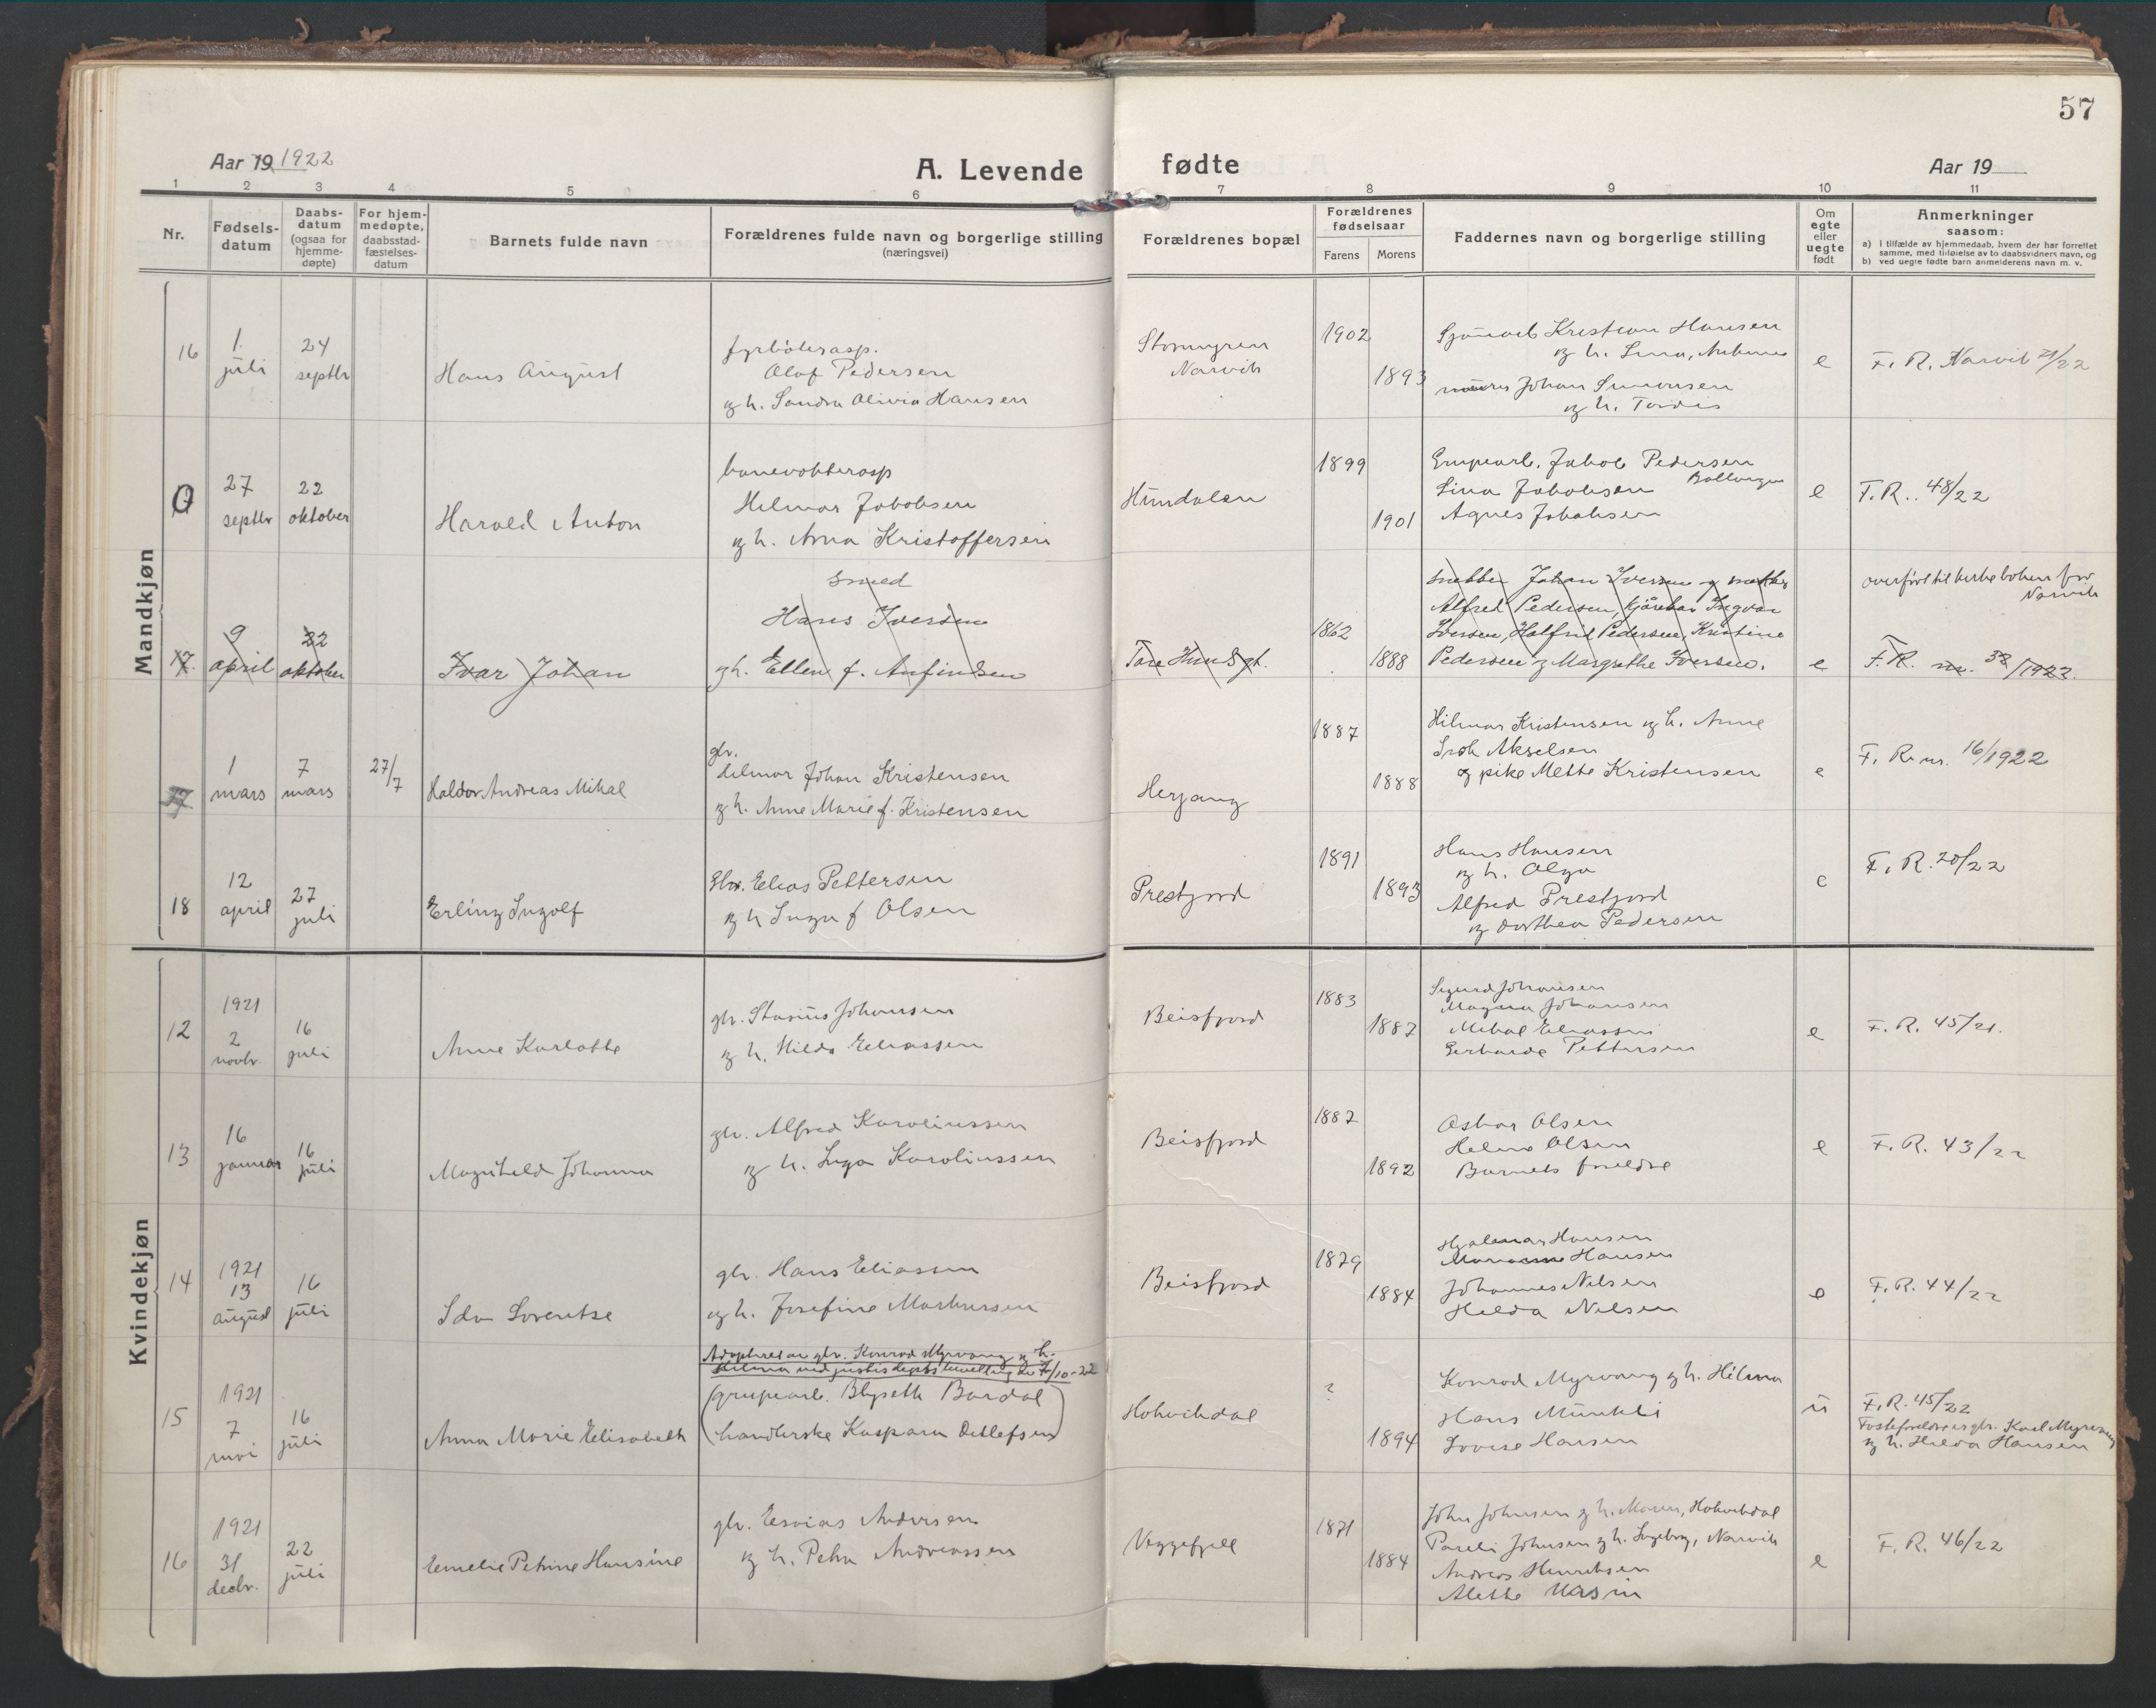 57
Aar 19 1922
A. Levende
fødte
Aar 19
1 2 3 4 5 6 7 8 9 10 11
Nr.
Fødsels-
datum
Daabs-
datum
(ogsaa for
hjemme-
døpte)
For hjem-
medøpte,
daabsstad-
fæstelses-
datum
Barnets fulde navn
Forældrenes fulde navn og borgerlige stilling
(næringsvei)
Forældrenes bopæl
Forældrenes
fødselsaar
Farens Morens
Faddernes navn og borgerlige stilling
Om
egte
eller
uegte
født
Anmerkninger
saasom:
a) i tilfælde av hjemmedaab, hvem der har forrettet
samme, med tilføielse av to daabsvidners navn, og
b) ved uegte fødte barn anmelderens navn m. v.
Mandkjøn
16
1.
juli
24
septbr
Hans August
fyrbøterasp.
Olaf Pedersen
og h. Sandra Olivia Hansen
Narvik
1902
1893
Kristian Hansen
og h.
Johan Simonsen
og h. Tordis
e
F. R. Narvik 21/22
27
septbr
22
oktober
Harald Anton
banevokterasp
Hilmar Jakobsen
og h. Anna Kristoffersen
Hundalen
1899
1901
Jakob Pedersen
Lina Jakobsen Ballangen
Agnes Jakobsen
e
F.R. 48/22
17.
9
april
22
oktober
Ivar Johan
smed
Hans Iversen
gh. Ellen f. Anfindsen
Tore Hunds gt.
1862
1888
snekker Johan Iversen og snekker
Alfred Pedersen, kjørekar Ingvar
Iversen, Halfrid Pedersen, Kristine
Pedersen og Margrethe Iversen.
e
overført til kirkeboken for
Narvik
F.R. nr. 38/1922.
17
1
mars
7
mars
27/7
Haldor Andreas Mikal
gbr.
Hilmar Johan Kristensen
og h. Anne Marie f. Kristensen
Herjang
1887
1888
Hilmar Kristensen og h. Anne
Akselsen
og pike Mette Kristensen
e
F. R. nr. 16/1922
18
12
april
27
juli
Erling Ingolf
Gbr. Elias Pettersen
og h Inga f Olsen
Prestjord
1891
1893
Hans Hansen
og h. Olga
Alfred Prestjord
og Dorthea Pedersen
e
F. R. 20/22
Kvindekjøn
12
1921
2
novbr.
16
juli
Anne Karlotte
gbr. Stasius Johansen
og h. Hilda Eliassen
Beisfjord
1883
1887
Sigurd Johansen
Magna Johansen
Mikal Eliassen
Gerharde Pettersen
e
F. R. 45/21.
13
16
januar
16
juli
Magnhild Johanna
gbr. Alfred Karoliussen
og h. Inga Karoliussen
Beisfjord
1887
1892
Oskar Olsen
Helene Olsen
Barnets foreldre
e
F. R. 43/22
14
1921
13
august
16
juli
Ida Lorentse
gbr. Hans Eliassen
og h. Josefine Markussen
Beisfjord
1879
1884
Hjalmar Hansen
Marianne Hansen
Johannes Nilsen
Hilda Nilsen
e
F. R. 44/22
15
1921
7
mai
16
juli
Anna Marie Elisabeth
Adopteret av gbr. Konrad Myrvang og h.
Hilma ved justisdepts bevilling av 7/10-22
(grupearb. Blyseth Bardal
handlerske Kaspara Detlefsen)
Hokvikdal
?
1894
Konrad Myrvang og h. Hilma
Hans
Lovise Hansen
u
F. R. 45/22
Fosterforeldre er gbr. Karl Myrvang
og h. Hilda Hansen
16
1921
31
decbr.
22
juli
Emelie Petrine Hansine
gbr. Esaias Andersen
og h. Petra Andreassen
Veggefjell
1871
1884
John Johnsen og h. Maren, Hokvikdal
Pareli Johnsen og h. Ingeborg, Narvik
Andreas Henriksen
Alethe Ursin
e
F. R. 46/22